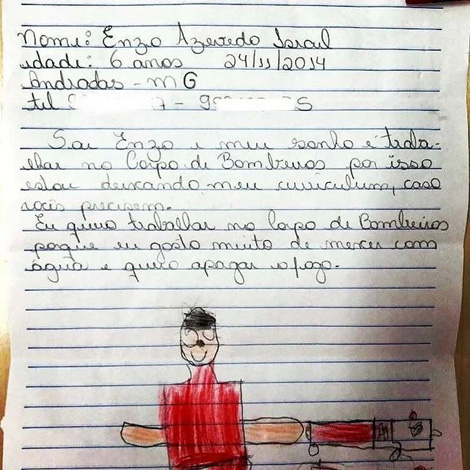 Nome: Enzo Azevedo Israel
idade: 6 anos 24/11/2014
Andradas - MG
tel
Sou Enzo e meu sonho é traba-
lhar no Corpo de Bombeiros por isso
estou deixando meu curriculum, caso
vocês precisem.
Eu quero trabalhar no Corpo de Bombeiros
porque eu gosto muito de mexer com
água e quero apagar o fogo.